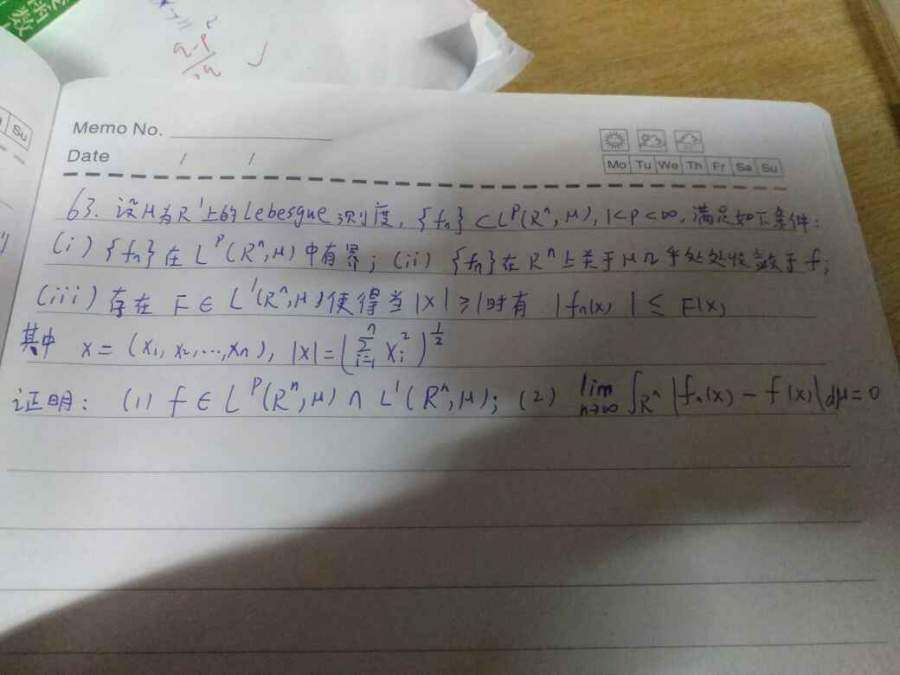 Memo No.
Date / /
Mo Tu We Th Fr Sa Su
63. 设μ为R¹上的Lebesgue测度, {fₙ}⊂Lᵖ(Rⁿ,μ), 1<p<∞, 满足如下条件:
(i) {fₙ}在Lᵖ(Rⁿ,μ)中有界; (ii) {fₙ}在Rⁿ上关于μ几乎处处收敛于f;
(iii) 存在 F∈L¹(Rⁿ,μ)使得当|x|≥1时有 |fₙ(x)| ≤ F(x)
其中 x=(x₁,x₂,...,xₙ), |x|=(∑ⁿᵢ₌₁ xᵢ²)^½
证明: (1) f∈Lᵖ(Rⁿ,μ)∩L¹(Rⁿ,μ); (2) lim n→∞ ∫Rⁿ |fₙ(x)-f(x)|dμ=0
Su